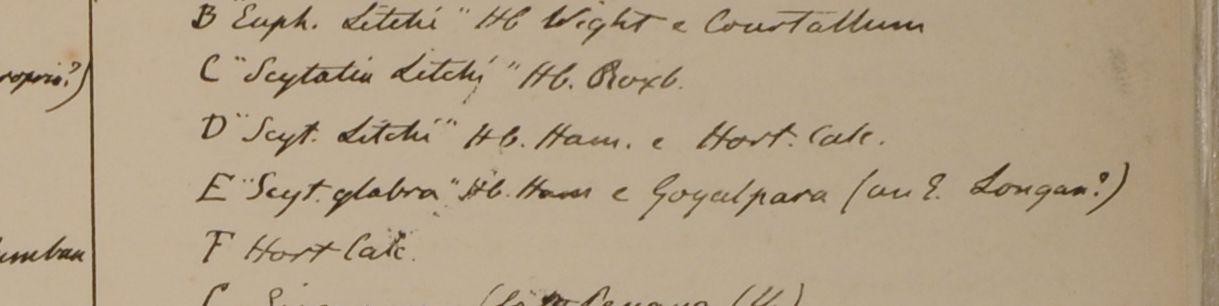 B "Euph. Litchi" Hb Wight e Courtallum
roprio?)
C "Scytalia Litchi" Hb. Roxb.
D "Scyt. Litchi" Hb. Ham. e Hort. Calc.
E "Scyt. glabra" Hb. Ham e Goyalpara (an E. Longan?)
umban
F Hort Calc.
Penang